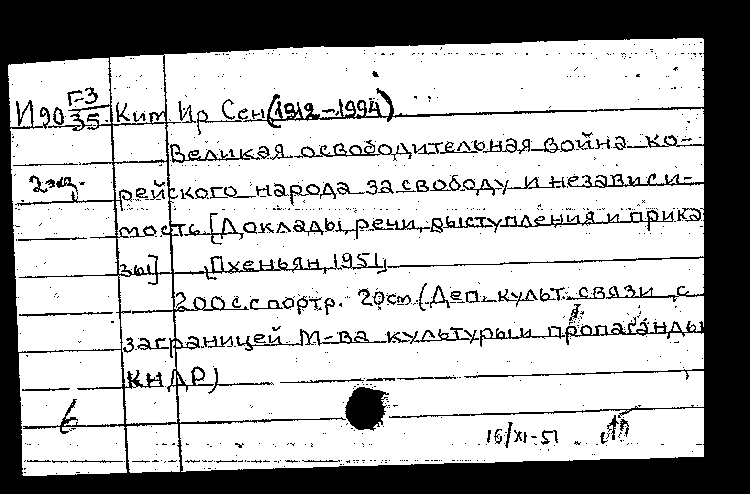 И90 Г-3/35 Ким Ир Сен (1912-1994)
Великая освободительная война ко-
2 экз. рейского народа за свободу и независи-
мость. [Доклады, речи, выступления и прика
зы] [Пхеньян, 1951]
200 с. с портр. 20 см (Деп. культ. связи с
заграницей М-ва культуры и пропаганды
КНДР)
6
16/XI-51